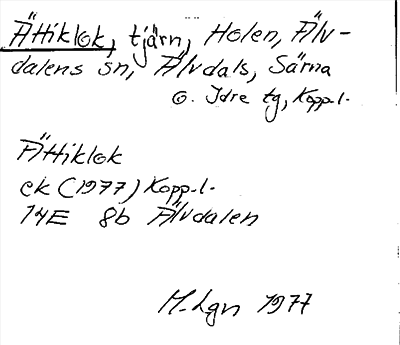 Ättiklok, tjärn, Holen, Älv-
dalens sn, Älvdals, Särna
o. Idre tg, Kopp.l.
Ättiklok
ek (1977) Kopp.l.
14E 8b Älvdalen
M. Lgn 1977